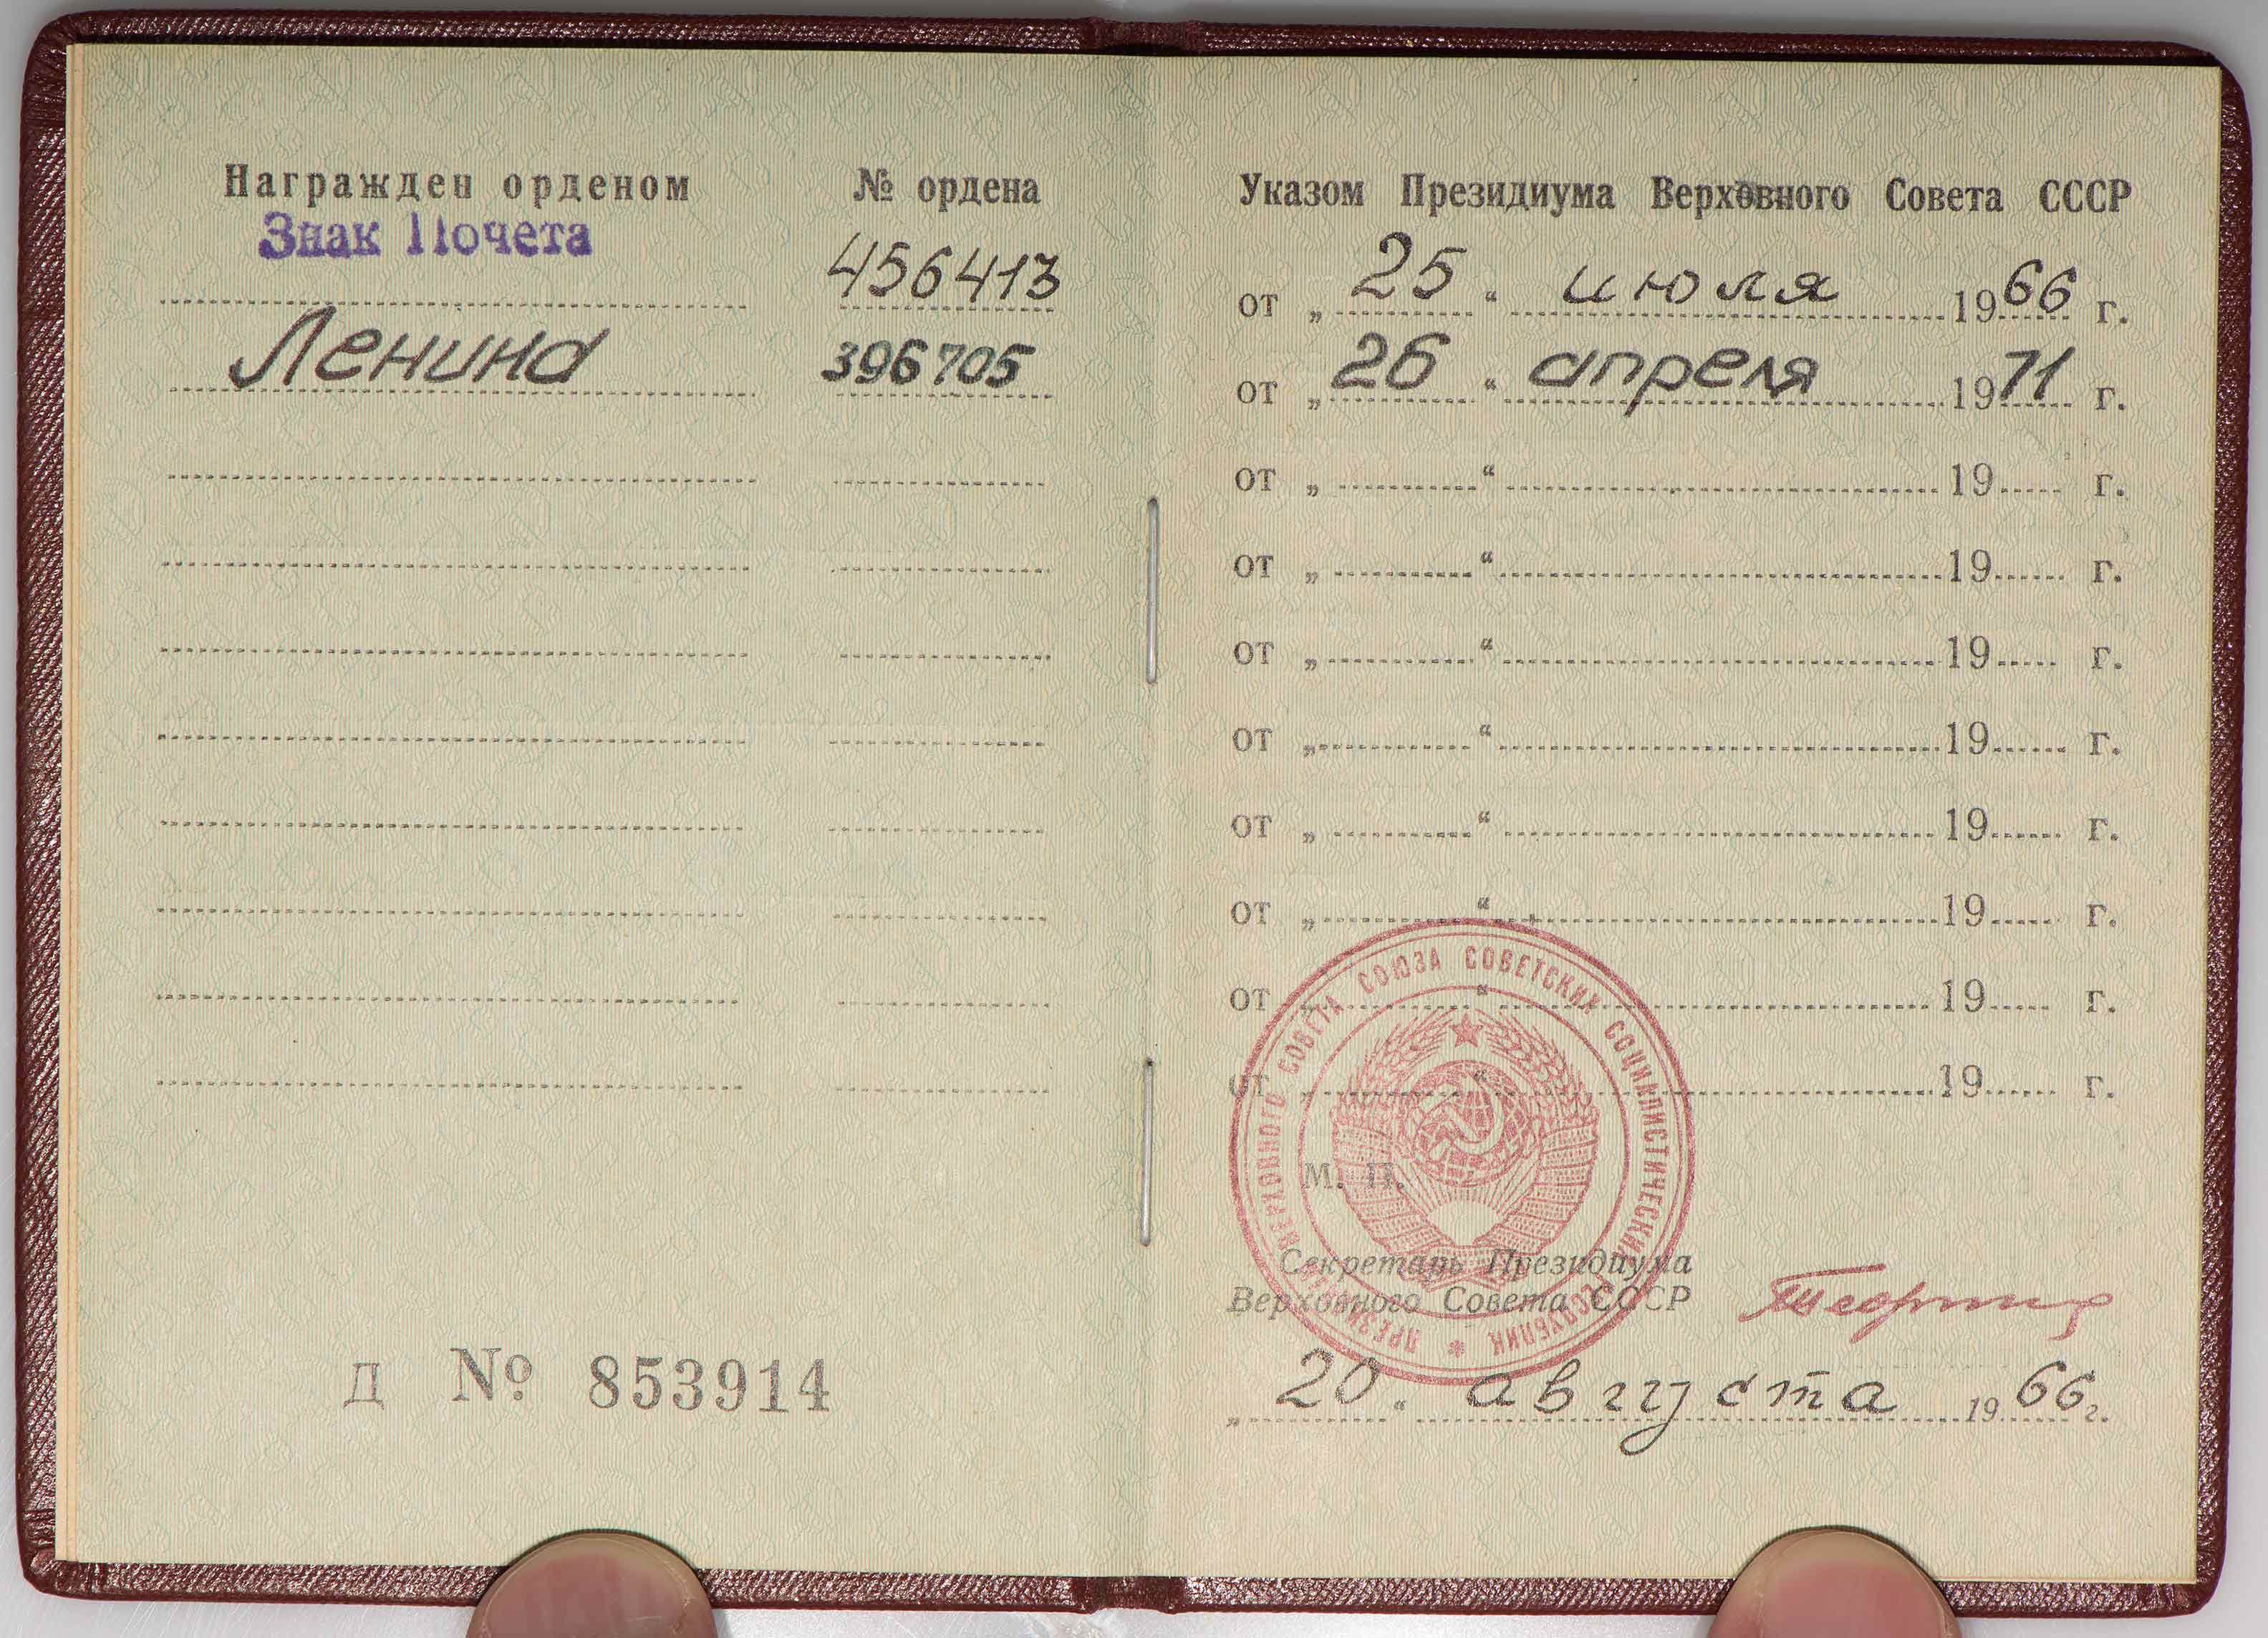 Награжден орденом № ордена
Знак Почета 456413
Ленина 396705
Д № 853914
Указом Президиума Верховного Совета СССР
от „25“ июля 1966 г.
от „26“ апреля 1971 г.
от „ “ 19 г.
от „ “ 19 г.
от „ “ 19 г.
от „ “ 19 г.
от „ “ 19 г.
от „ “ 19 г.
от „ “ 19 г.
от „ “ 19 г.
ПРЕЗИДИУМ ВЕРХОВНОГО СОВЕТА СОЮЗА СОВЕТСКИХ СОЦИАЛИСТИЧЕСКИХ РЕСПУБЛИК *
М. П.
Секретарь Президиума
Верховного Совета СССР
„20“ августа 1966 г.